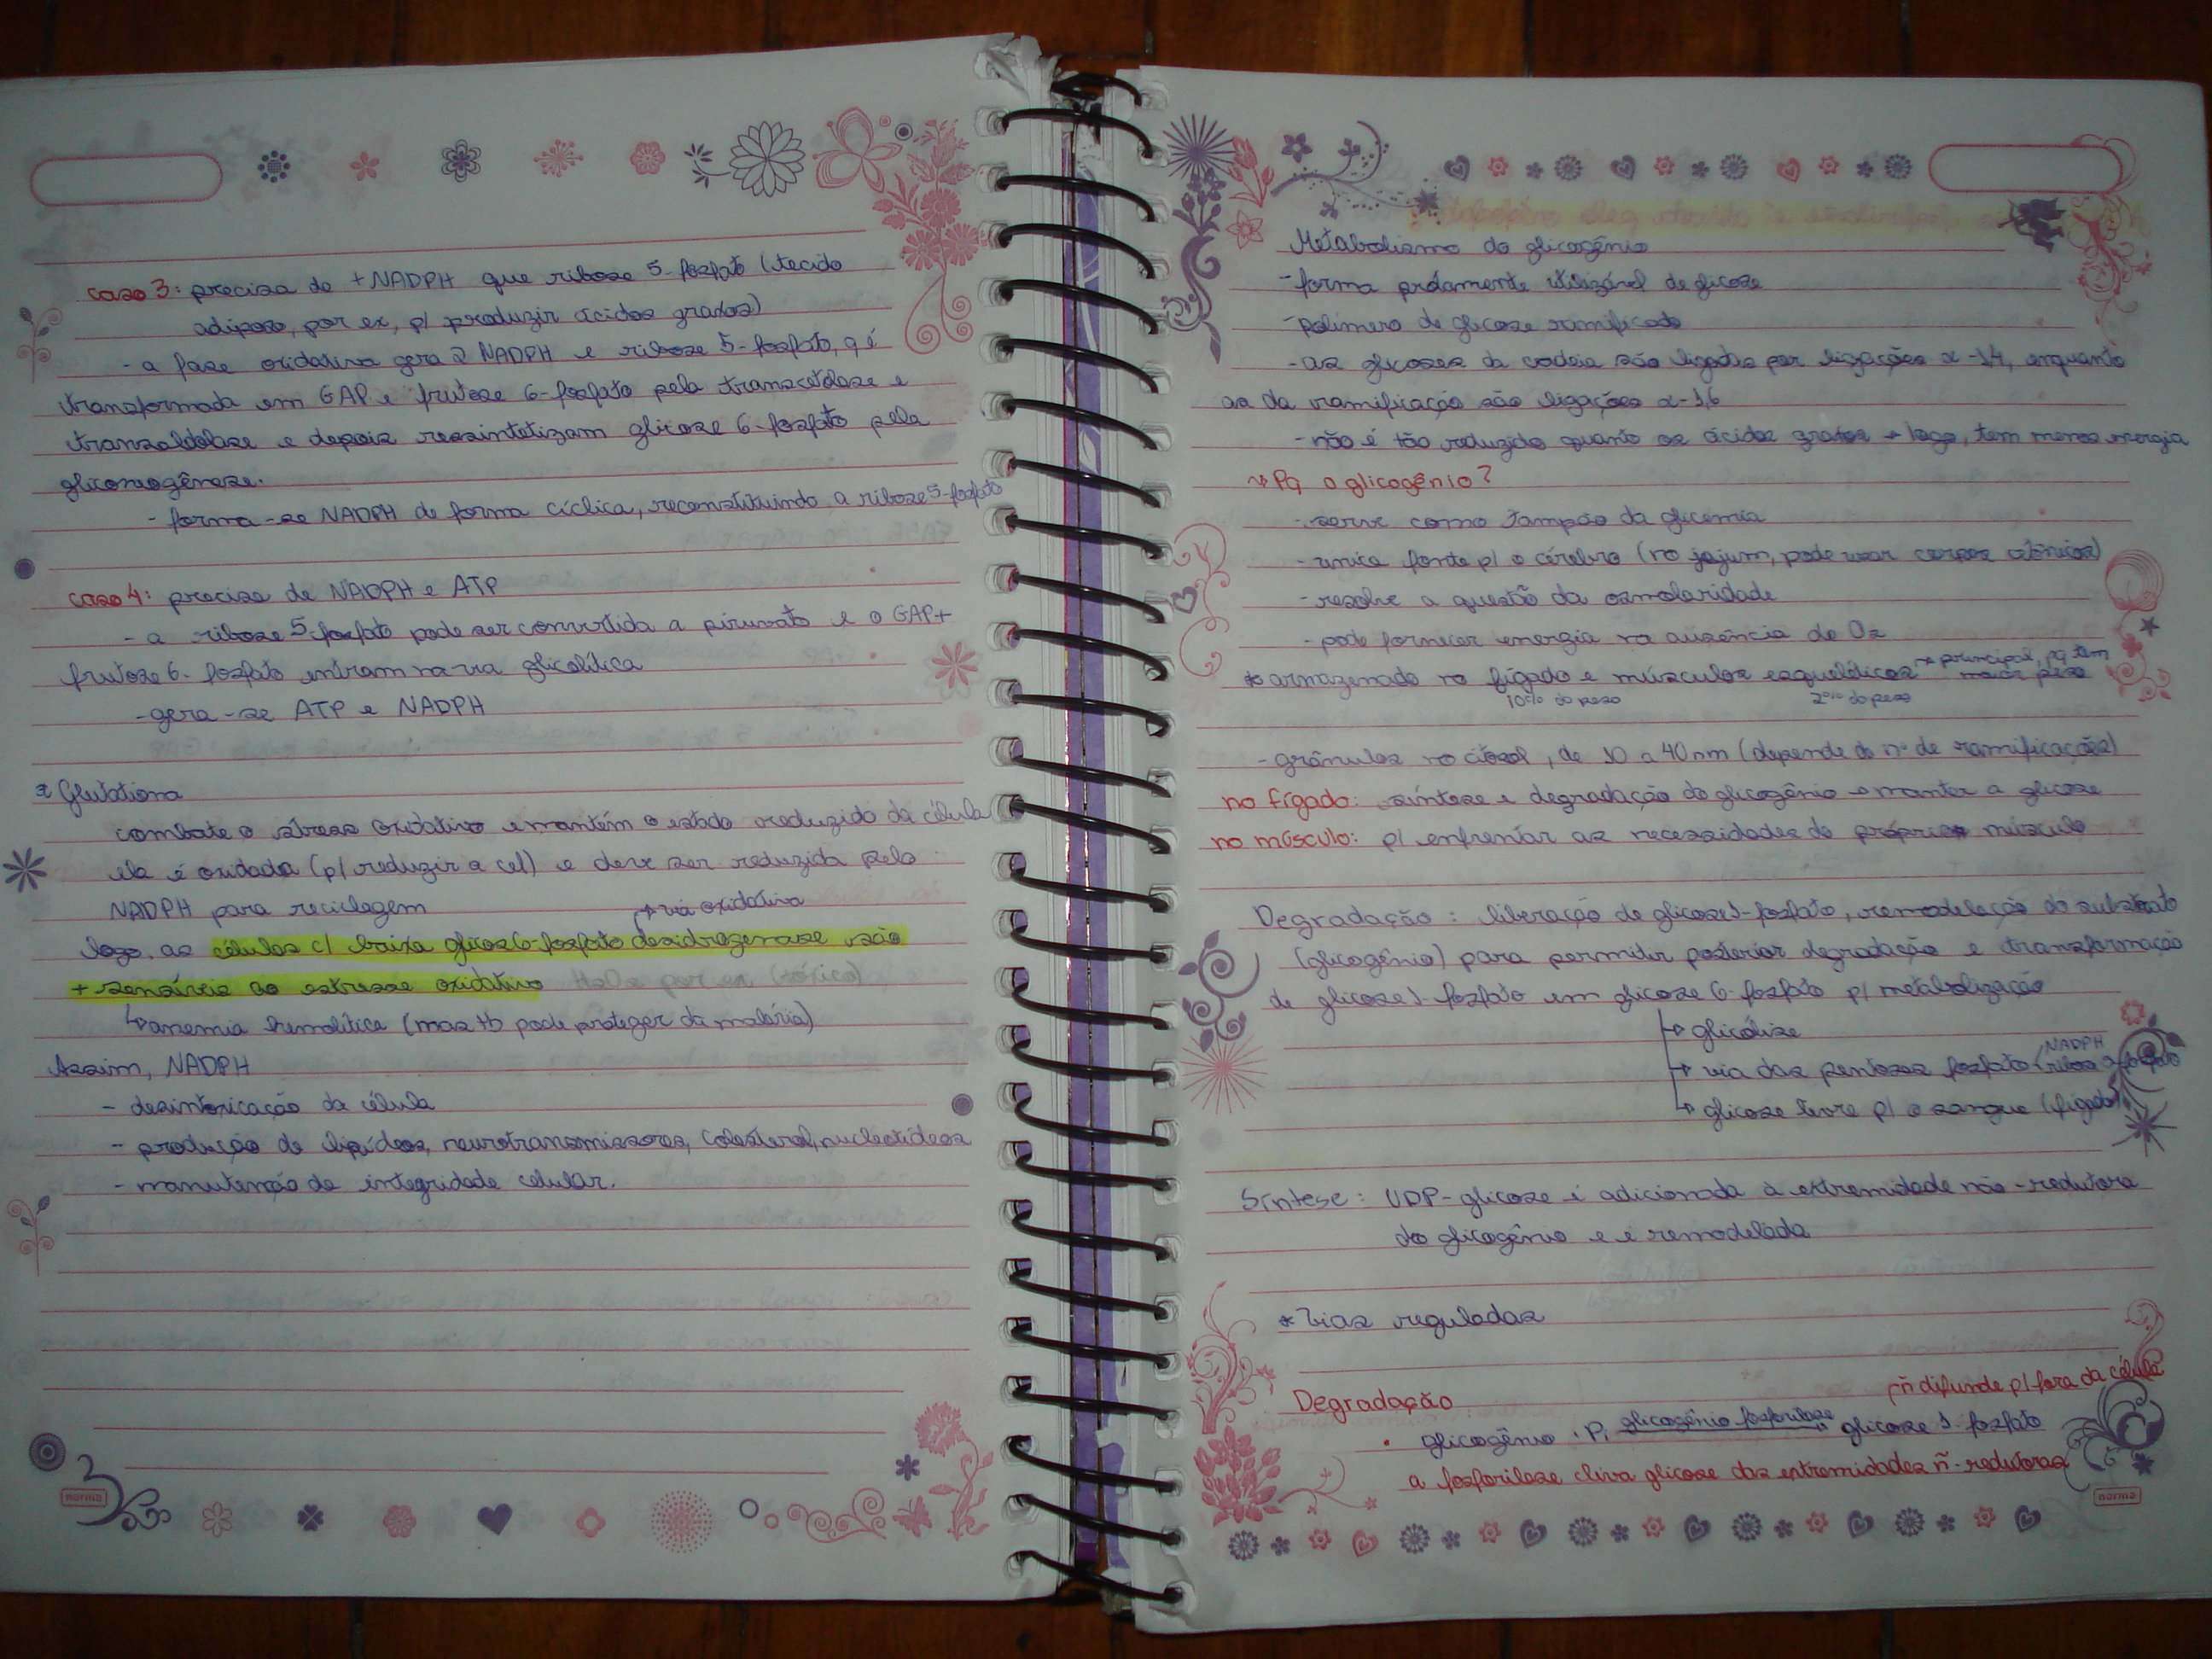 caso 3: precisa de +NADPH que ribose 5-fosfato (tecido
adiposo, por ex, p/ produzir ácidos graxos)
- a fase oxidativa gera 2 NADPH e ribose 5-fosfato, q é
transformada em GAP e frutose 6-fosfato pela transcetolase e
transaldolase e depois ressintetizam glicose 6-fosfato pela
gliconeogênese.
- forma-se NADPH de forma cíclica, reconstituindo a ribose 5-fosfato
caso 4: precisa de NADPH e ATP
- a ribose 5-fosfato pode ser convertida a piruvato e o GAP +
frutose 6-fosfato entram na via glicolítica
- gera-se ATP e NADPH
* Glutationa
combate o stress oxidativo e mantém o estado reduzido da célula
ela é oxidada (p/ reduzir a cel) e deve ser reduzida pelo
NADPH para reciclagem
→ via oxidativa
logo, as células c/ baixa glicose 6-fosfato desidrogenase são
+ sensíveis ao estresse oxidativo H2O2 por ex (tóxico)
↳ anemia hemolítica (mas tb pode proteger da malária)
Assim, NADPH
- desintoxicação da célula
- produção de lipídeos, neurotransmissores, colesterol, nucleotídeos
- manutenção da integridade celular.
norma
Metabolismo do glicogênio
- forma prontamente utilizável de glicose
- polímero de glicose ramificado
- as glicoses da cadeia são ligadas por ligações α-1,4, enquanto
as da ramificação são ligações α-1,6
- não é tão reduzido quanto os ácidos graxos → logo, tem menos energia
→ Pq o glicogênio?
- serve como tampão da glicemia
- única fonte p/ o cérebro (no jejum, pode usar corpos cetônicos)
- resolve a questão da osmolaridade
- pode fornecer energia na ausência de O2
* armazenado no fígado e músculos esqueléticos → principal, pq tem maior peso
10% do peso 2% do peso
- grânulos no citosol, de 10 a 40nm (depende do nº de ramificações)
no fígado: síntese e degradação do glicogênio → manter a glicose
no músculo: p/ enfrentar as necessidades do próprio músculo
Degradação: liberação de glicose 1-fosfato, remodelação do substrato
(glicogênio) para permitir posterior degradação e transformação
de glicose 1-fosfato em glicose 6-fosfato p/ metabolização
→ glicólise
→ via das pentoses fosfato (NADPH ribose 5-fosfato
→ glicose livre p/ o sangue (fígado)
Síntese: UDP-glicose é adicionada à extremidade não-redutora
do glicogênio e é remodelada
* Vias reguladas
Degradação
ñ difunde p/ fora da célula
• glicogênio + Pi glicogênio fosforilase → glicose 1-fosfato
a fosforilase cliva glicose das extremidades ñ-redutoras
norma